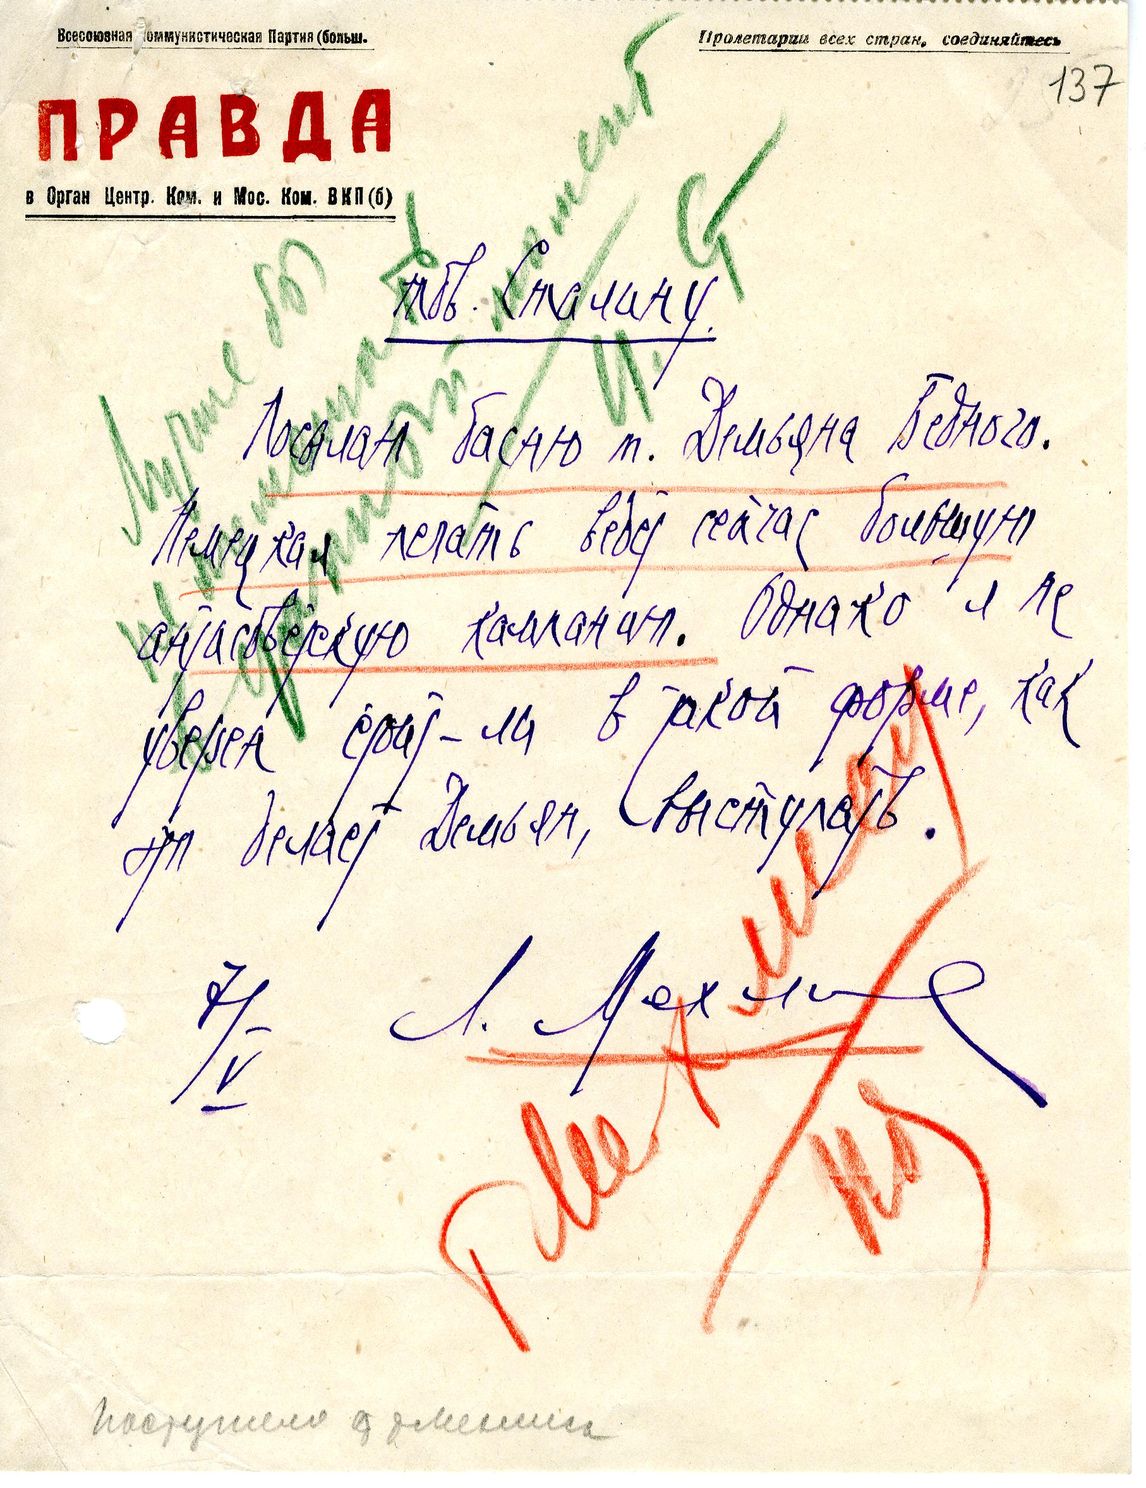 Всесоюзная Коммунистическая Партия (больш.
Пролетарии всех стран, соединяйтесь
137
ПРАВДА
в Орган Центр. Ком. и Мос. Ком. ВКП(б)
Лучше бы
не печатать
в данный момент
И. Ст
тов. Сталину.
Посылаю басню т. Демьяна Бедного.
Немецкая печать ведет сейчас большую
антисоветскую кампанию. Однако я не
уверен стоит-ли в такой форме, как
это делает Демьян, выступать.
7/V
Л. Мехлис
т Мехлису
Поступило